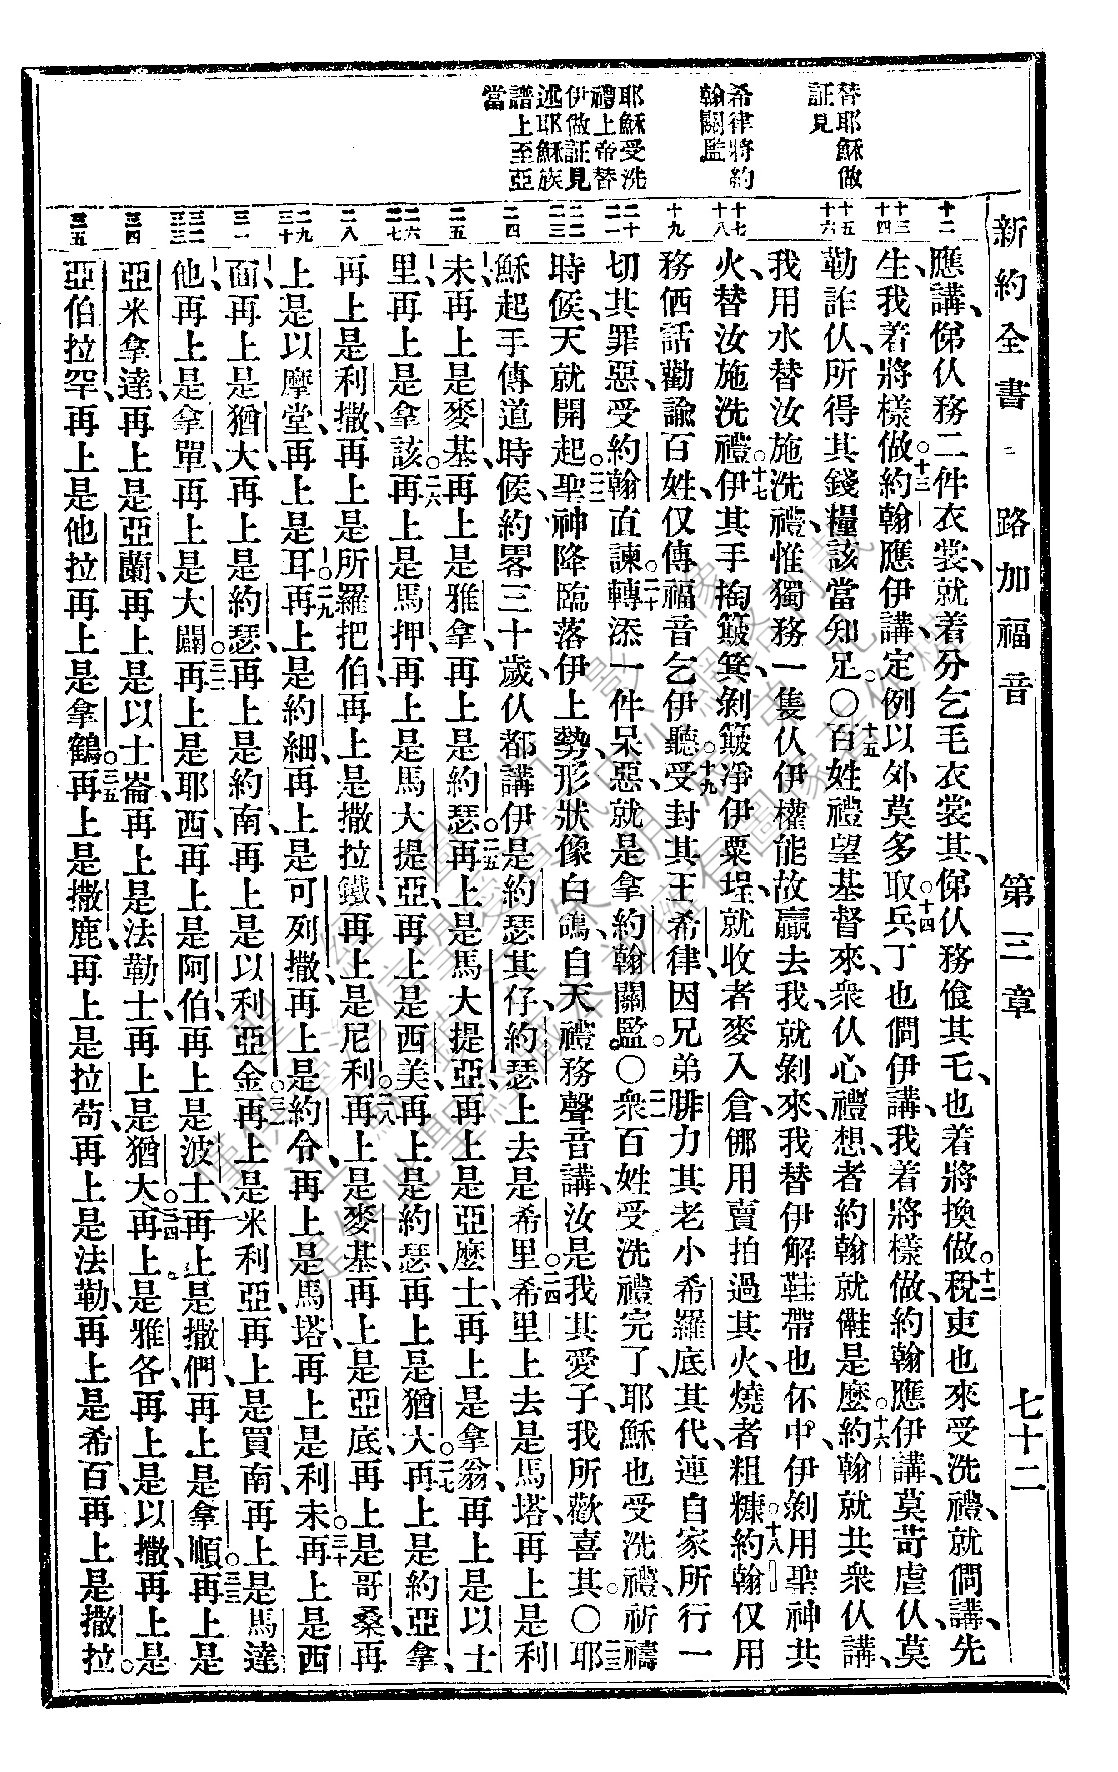 新約全書 路加福音 第三章 七十二
替耶穌做
証見
希律將約
翰關監
耶穌受洗
禮上帝替
伊做証見
述耶穌族
譜上至亞
當
十二
十三 十四
十五 十六
十七 十八
十九
二十 二一
二二 二三
二四
二五
二六 二七
二八
二九 三十
三一
三二 三三
三四
三五
應講、俤仈務二件衣裳、就着分乞毛衣裳其、俤仈務飡其乇、也着將換做。十二稅吏也來受洗禮、就問講、先
生、我着將樣做。十三約翰應伊講、定例以外莫多取。十四兵丁也問伊講、我着將樣做、約翰應伊講、莫苛虐仈、莫
勒詐仈、所得其錢糧、該當知足。〇十五百姓禮望基督來、衆仈心禮想者約翰就儺是麽。十六約翰就共衆仈講、
我用水替汝施洗禮、惟獨務一隻仈、伊權能故贏去我、我就剝來、我替伊解鞋帶也伓中、伊剝用聖神共
火、替汝施洗禮。十七伊其手掏簸箕、剝簸淨伊粟埕、就收者麥入倉、㑚用賣拍過其火、燒者粗糠。十八約翰仅用
務価話勸諭百姓、仅傳福音乞伊聽受。十九封其王希律、因兄弟腓力其老小希羅底其代、連自家所行一
切其罪惡、受約翰直諫、二十轉添一件呆惡、就是拿約翰關監。〇二一衆百姓受洗禮完了、耶穌也受洗禮、祈禱
時候、天就開起、二二聖神降臨落伊上勢、形狀像白鴿、自天禮務聲音講、汝是我其愛子、我所歡喜其。〇二三耶
穌起手傳道時候、約畧三十歲、仈都講伊是約瑟其仔、約瑟上去是希里、二四希里上去是馬塔、再上是利
未、再上是麥基、再上是雅拿、再上是約瑟、二五再上是馬大提亞、再上是亞麽士、再上是拿翁、再上是以士
里、再上是拿該、二六再上是馬押、再上是馬大提亞、再上是西美、再上是約瑟、再上是猶大、二七再上是約亞拿、
再上是利撒、再上是所羅把伯、再上是撒拉鐵、再上是尼利、二八再上是麥基、再上是亞底、再上是哥桑、再
上是以摩堂、再上是耳、二九再上是約細、再上是可列撒、再上是約令、再上是馬塔、再上是利未、三十再上是西
面、再上是猶大、再上是約瑟、再上是約南、再上是以利亞金、三一再上是米利亞、再上是買南、再上是馬達
他、再上是拿單、再上是大闢、三二再上是耶西、再上是阿伯、再上是波士、再上是撒們、再上是拿順、三三再上是
亞米拿達、再上是亞蘭、再上是以士崙、再上是法勒士、再上是猶大、三四再上是雅各、再上是以撒、再上是
亞伯拉罕、再上是他拉、再上是拿鶴、三五再上是撒鹿、再上是拉苟、再上是法勒、再上是希百、再上是撒拉。